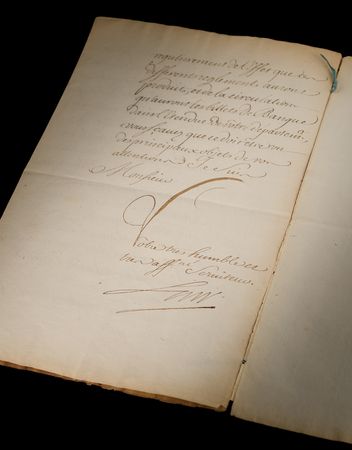 regulierement de l'Effet que ces
differents reglements auront
produits, et de la circulation
qu'auront les billets de Banque
dans l'étendue de vôtre departem.t
vous sçavez que ce doit estre un
des principaux objets de vos
attentions Je suis
Monsieur
Vôtre tres humble et
tres aff.né Serviteur.
Law